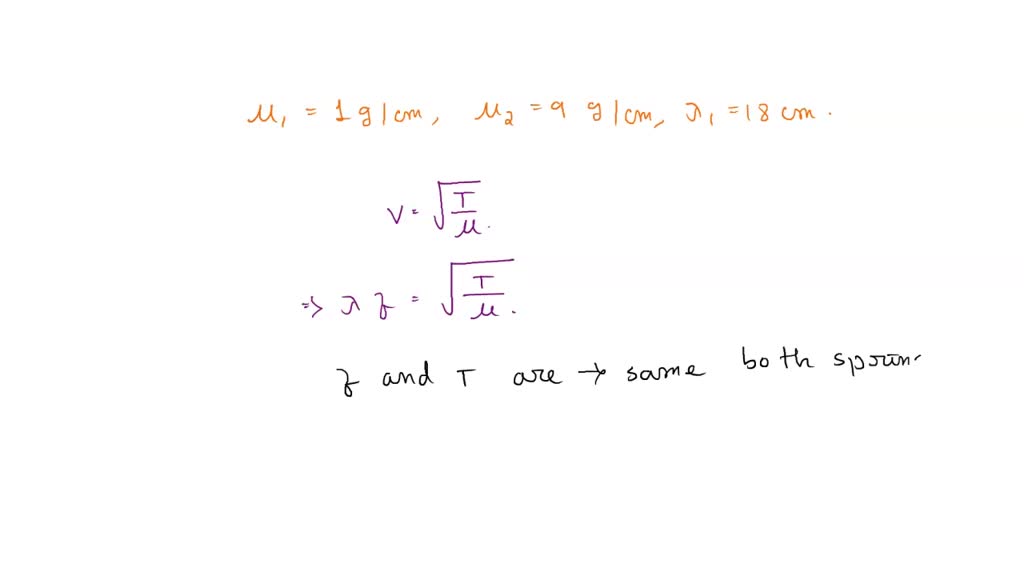 μ₁ = 1 g/cm, μ₂ = 9 g/cm, λ₁ = 18 cm.
v = √(T/μ).
⇒ λ f = √(T/μ).
f and T are → same both sprin